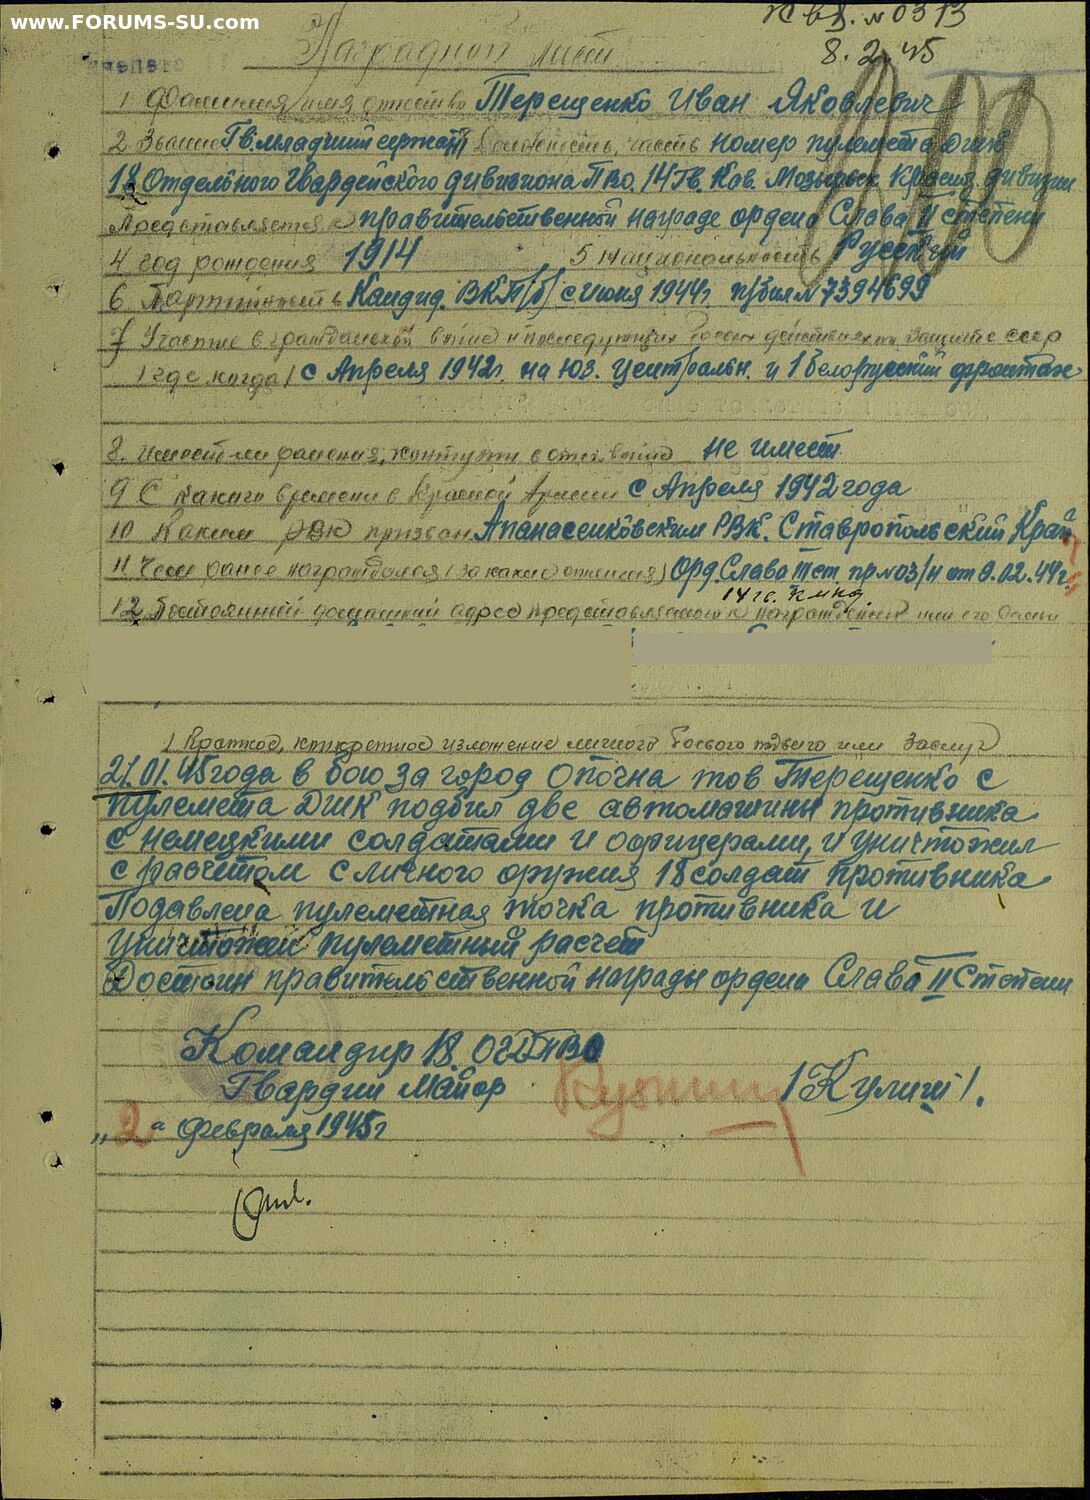 www.FORUMS-SU.com
К вх. № 0313
8.2.45
Наградной лист
1 Фамилия имя отчество Терещенко Иван Яковлевич
2 Звание Гв. младший сержант Должность, часть номер пулемета ДШК
18 Отдельного Гвардейского дивизиона ПВО 14 Гв. Кав. Мозырьск. Кр дивизии
Представляется к правительственной награде ордена Слава II степени
4 год рождения 1914 5 Национальность Русский
6 Партийность Кандид. ВКП/б/ с июня 1944г. п/бил №7394699
7 Участие в гражданской войне и последующих боевых действиях по защите ссср
/где когда/ с Апреля 1942г. на Юз. Центральн. и 1 Белорусский фронтах
8. Имеет-ли ранения, контузии в отеч. войне не имеет
9 С какого времени в Красной Армии с Апреля 1942 года
10 Каким РВК призван Апанасенковским РВК. Ставропольский Край
11 Чем ранее награждался (за какие отличия) Орд. Слава III ст. пр №03/н от 9.02.44г.
14 гв. кмкд.
12 Постоянный домашний адрес представляемого к награждению или его семьи
/ Краткое, конкретное изложение личного боевого подвига или заслуг
21.01.45 года в бою за город Опочна тов Терещенко с
пулемета ДШК подбил две автомашины противника
с немецкими солдатами и офицерами, и уничтожил
с расчетом с личного оружия 18 солдат противника
Подавлена пулеметная точка противника и
уничтожен пулеметный расчет
Достоин правительственной награды ордена Слава II Степени
Командир 18 ОГДПВО
Гвардии Майор /Кулиш/.
„2" февраля 1945г